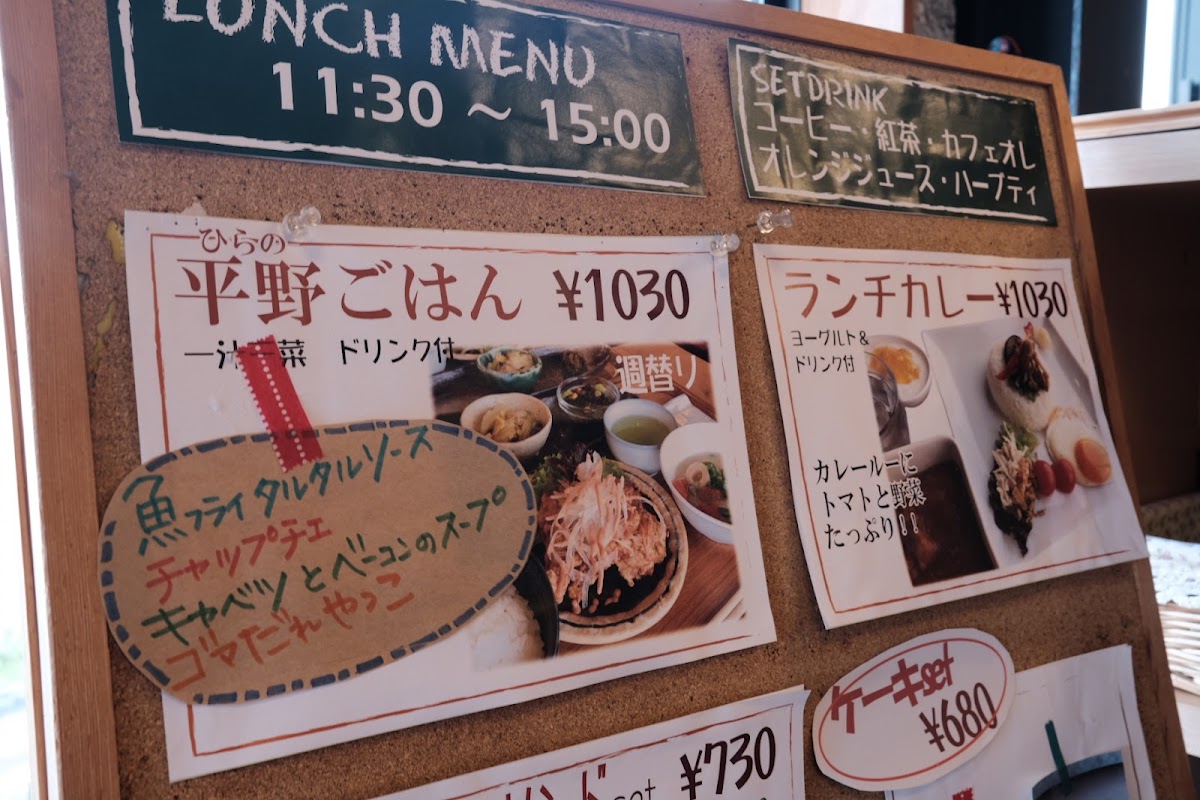 LUNCH MENU
11:30 ～ 15:00
SETDRINK
コーヒー・紅茶・カフェオレ
オレンジジュース・ハーブティ
ひらの
平野ごはん ¥1030
一汁一菜 ドリンク付
週替り
魚フライタルタルソース
チャップチェ
キャベツとベーコンのスープ
ゴマだれやっこ
ランチカレー ¥1030
ヨーグルト&
ドリンク付
カレールーに
トマトと野菜
たっぷり!!
ケーキset
¥680
set ¥730